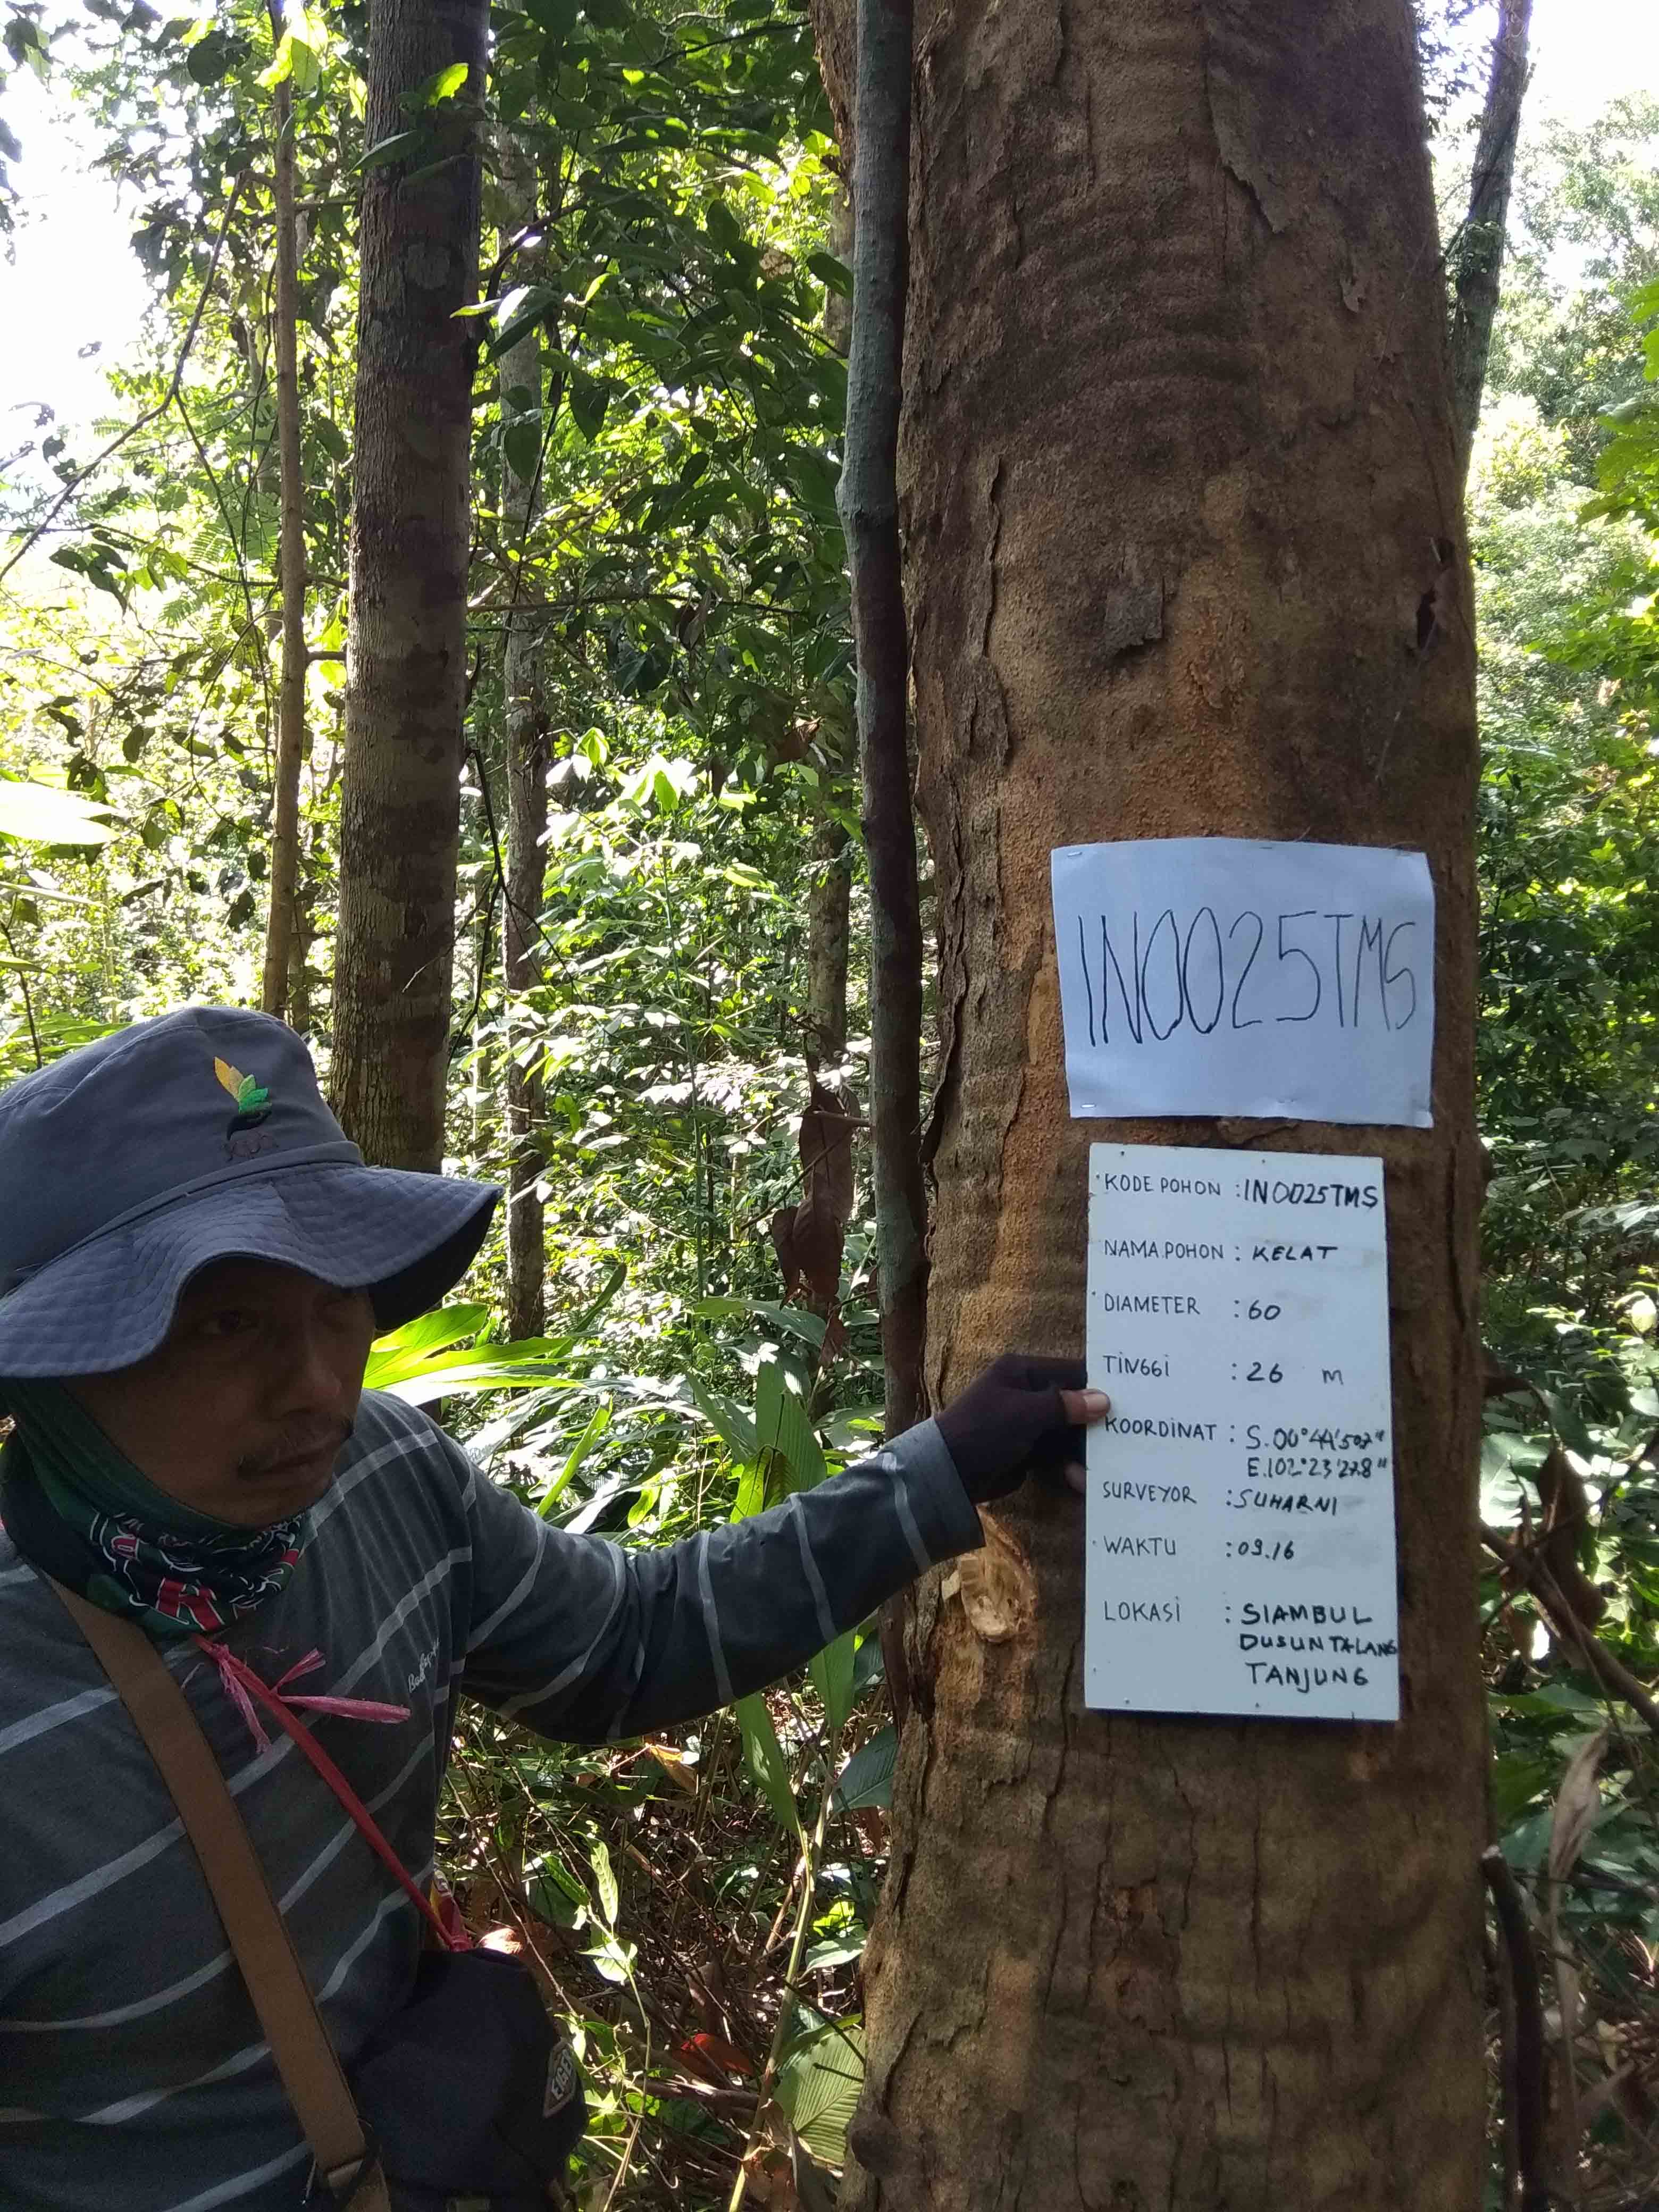 IN0025TMS
KODE POHON : IN0025TMS
NAMA POHON : KELAT
DIAMETER : 60
TINGGI : 26 m
KOORDINAT : S.00°44'507"
E.102°23'27.8"
SURVEYOR : SUHARNI
WAKTU : 09.16
LOKASI : SIAMBUL
DUSUN TALANG
TANJUNG